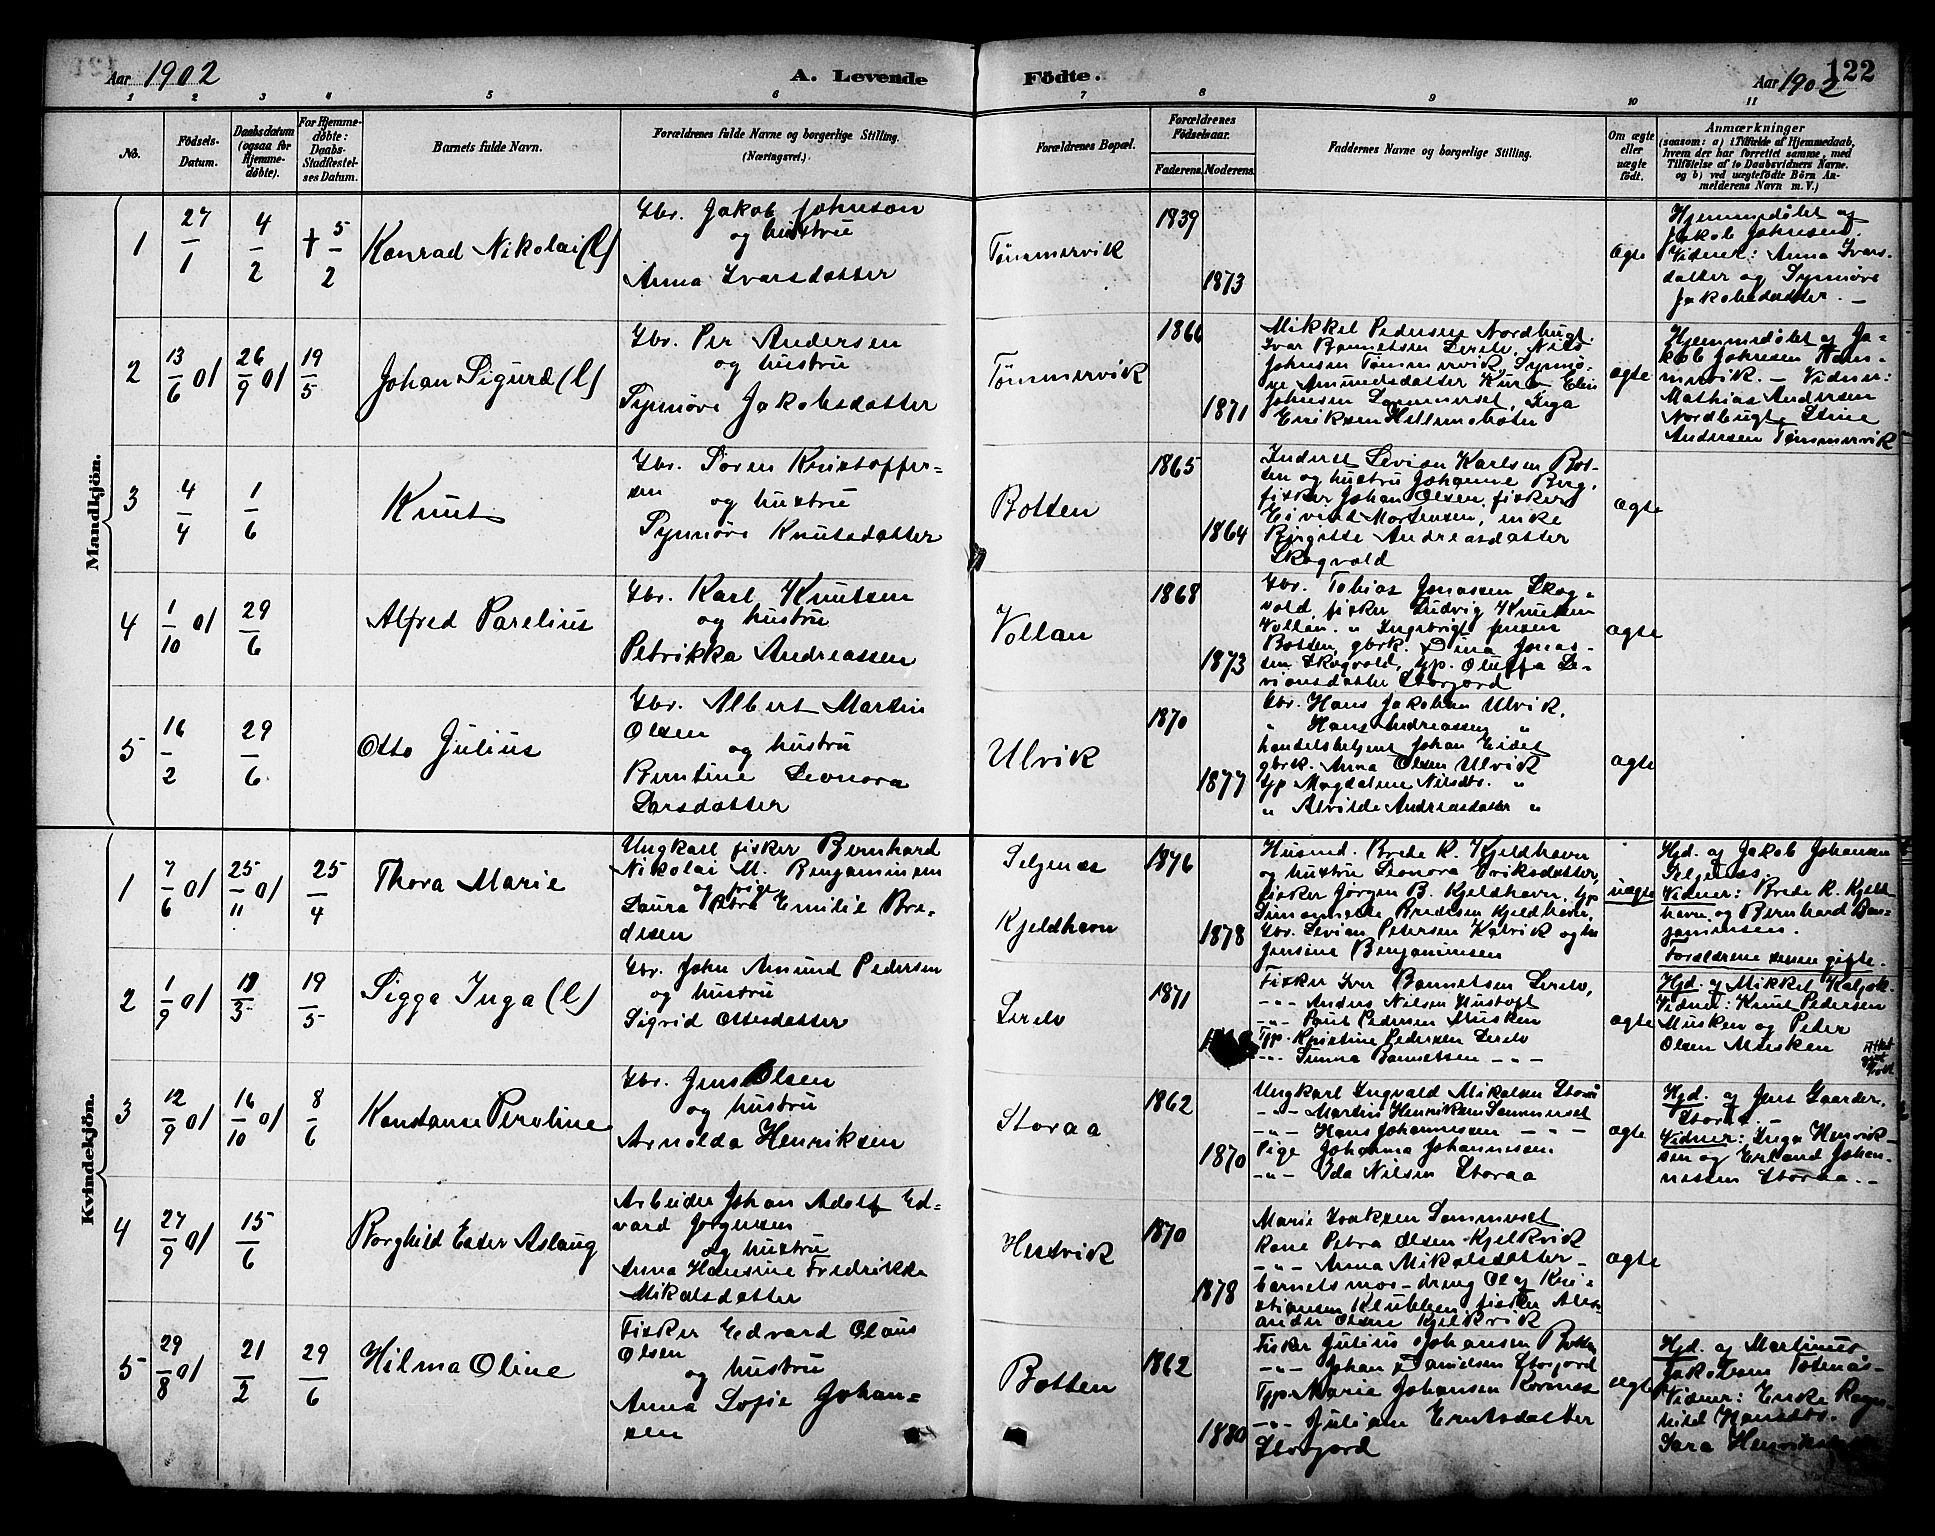 Aar 1902
A. Levende
Födte.
Aar 1902
122
1 2 3 4 5 6 7 8 9 10 11
No.
Födsels-
Datum.
Daabsdatum
(ogsaa for
Hjemme-
døbte).
For Hjemme-
døbte:
Daabs-
Stadfæstel-
ses Datum.
Barnets fulde Navn.
Forældrenes fulde Navne og borgerlige Stilling.
(Næringsvei.)
Forældrenes Bopæl.
Forældrenes
Födselsaar.
Faderens. Moderens.
Faddernes Navne og borgerlige Stilling.
Om ægte
eller
uægte
født.
Anmærkninger
(saasom: a) i Tilfælde af Hjemmedaab,
hvem der har forrettet samme, med
Tilföielse af to Daabsvidners Navne.
og b) ved uægtefödte Börn An-
melderens Navn m. V.)
Mandkjön.
1
27/1
4/2
+ 5/2
Konrad Nikolai (l)
Gbr. Jakob Johnson
og hustru
Anna Ivarsdatter
Tømmervik
1839
1873
ægte
Hjemmedøbt af
Jakob Johnsen.
Vidner: Anna Ivars-
datter og Synnøve
Jakobsdatter. —
2
13/6 01
26/9 01
19/5
Johan Sigurd (l)
Gbr. Per Andersen
og hustru
Synnøve Jakobsdatter
Tømmervik
1866
1871
Mikkel Pedersen Nordbugt
Ivar Bannetsen Lerelv, Nils
Johnsen Tømmervik, Synnø-
ve Amundsdatter Kurs, Elen
Johnsen Sommerset, Inga
Eriksen Hellemobotn
ægte
Hjemmedøbt af Ja-
kob Johnsen Tøm-
mervik. — Vidner:
Mathias Andersen
Nordbugt, Stine
Andersen Tømmervik
3
4/4
1/6
Knut
Gbr. Søren Kristoffer-
sen
og hustru
Synnøve Knutsdatter
Botten
1865
1864
Inderst Levion Karlsen Bot-
ten og hustru Johanne Berg,
fisker Johan Olsen, fisker
Eivind Mortensen, enke
Birgitte Andreasdatter
Skogvold
ægte
4
1/10 01
29/6
Alfred Parelius
Gbr. Karl Knutsen
og hustru
Petrikka Andreassen
Vollan
1868
1873
Gbr. Tobias Jonassen Skog-
vold, fisker Ludvig Knutsen
Vollan. " Ingebrigt Jensen
Botten, gbrk. Dina Jonas-
sen Skogvold, typ. Oluffa Le-
vionsdatter Storjord
ægte
5
16/2
29/6
Otto Julius
Gbr. Albert Martin
Olsen
og hustru
Berntine Leonora
Larsdatter
Ulvik
1870
1877
Gbr. Hans Jakobsen Ulvik,
" Hans Andreassen "
handelsbetjent Johan Eidet
gbrk. Anna Olsen Ulvik
typ Magdalene Nilsdtr. "
" Alvilde Andreasdatter "
ægte
Kvindekjön.
1
7/6 01
25/11 01
25/4
Thora Marie
Ungkarl fisker Bernhard
Nikolai M. Benjaminsen
og pige
Laura Petra Emilie Bre-
desen
Selgenæs
Kjeldhavn
1876
1878
Husmd. Brede R. Kjeldhavn
og hustru Leonora Eriksdatter,
fisker Jørgen B. Kjeldhavn, typ
Simonette Bredesen Kjeldhavn,
Gbr. Levion Petersen Kalvik og hu
Jensine Benjaminsen
uægte
Hjd. af Jakob Johansen
Selgenæs.
Vidner: Brede R. Kjeld-
havn og Bernhard Ben-
jaminsen.
Forældrene senere gifte.
2
1/9 01
19/3
19/5
Sigga Inga (l)
Gbr. John Amund Pedersen
og hustru
Sigrid Ottesdatter
Lerelv
1871
Fisker Iver Bannetsen Lerelv,
-"- Anders Nilsen Hustoft
-"- Paul Pedersen Musken
Typ. Kristine Pedersen Lerelv
-"- Simna Bannetsen -"-
ægte
Hjd. af Mikkel Kaljok.
Vidner: Knut Pedersen
Musken og Peder
Olsen Musken
3
12/9 01
16/10 01
8/6
Konstanse Peroline
Gbr. Jens Olsen
og hustru
Arnolda Henriksen
Storaa
1862
1870
Ungkarl Ingvald Mikalsen Storaa
-"- Martin Henriksen Sommerset
-"- Hans Johannesen -"-
Pige Johanna Johannesen
-"- Ida Nilsen Storaa
ægte
Hjd. af Jens Gaarder,
Storaa. —
Vidner: Inga Henrik-
sen og Erland Johan-
nessen Storaa. —
4
27/9 01
15/6
Borghild Ester Aslaug
Arbeider Johan Adolf Ed-
vard Jørgensen
og hustru
Anna Hansine Fredrikke
Mikalsdatter
Hestvik
1870
1878
Marie Isaksen Sommerset
Kone Petra Olsen Kjelkvik
-"- Anna Mikalsdatter -
barnets mor - dreng Olaf Kri-
stiansen Klubben, fisker Alex-
ander Olsen Kjelkvik
ægte
5
29/8 01
21/2
29/6
Hilma Oline
Fisker Edvard Olaus
Olsen
og hustru
Anna Sofie Johan-
sen
Botten
1862
1880
Fisker Julius Johansen Botten
-"- Johan Danielsen Storjord
Typ. Marie Johansen Kornes
-"- Juliane Erntsdatter
Storjord
ægte
Hjd. af Martinus
Jakobsen Totenæs-
Vidner: Enke Ragn-
hild Hansdtr.
Sara Henriksen